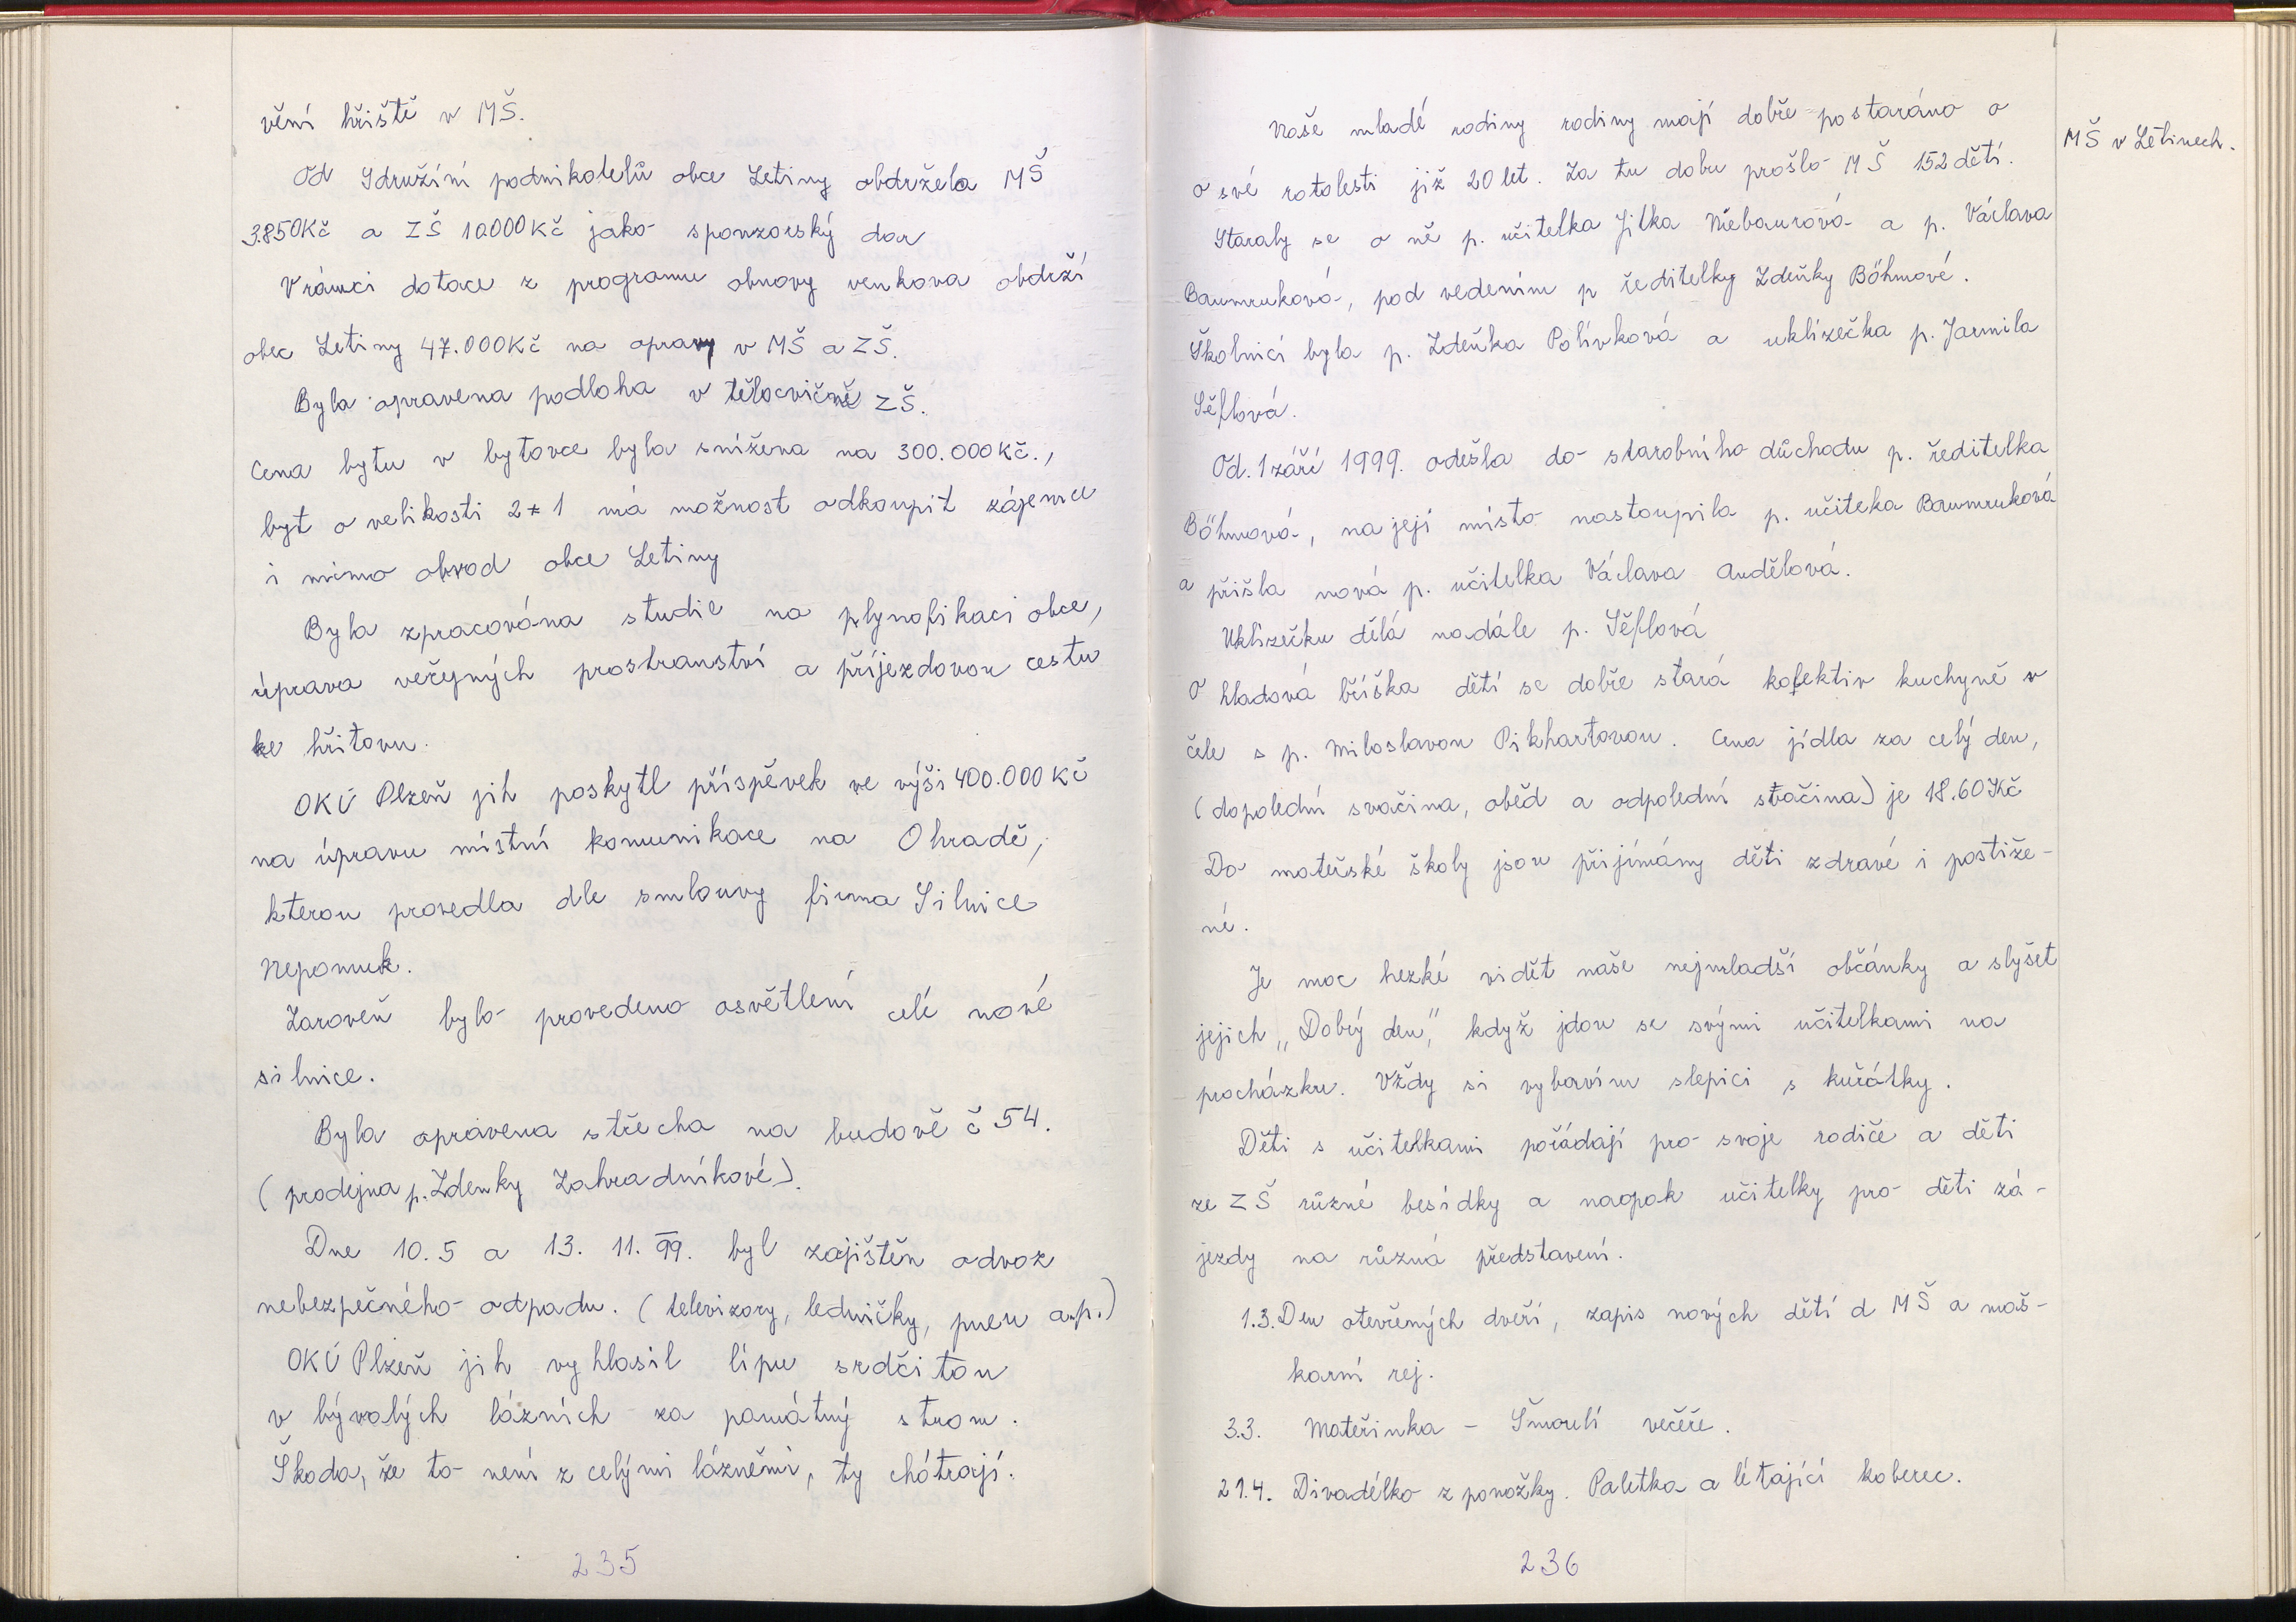 vění hřiště v MŠ.
Od Sdružíní podnikatelů obce Letiny obdržela MŠ
3.850Kč a ZŠ 10.000Kč jako sponzorský dar
V rámci dotace z programu obnovy venkova obdrží
obec Letiny 47.000Kč na opravy v MŠ a ZŠ.
Byla opravena podloha v tělocvičně ZŠ.
Cena bytu v bytovce byla snížena na 300.000Kč.,
byt o velikosti 2+1 má možnost odkoupit zájemce
i mimo obvod obce Letiny
Byla zpracována studie na plynofikaci obce,
úprava veřejných prostranství a příjezdovou cestu
ke hřitovu.
OKÚ Plzeň jih poskytl příspěvek ve výši 400.000Kč
na úpravu místní komunikace na Ohradě,
kterou provedla dle smlouvy firma Silnice
Nepomuk.
Zaroveň bylo provedeno osvětlení celé nové
silnice.
Byla opravena střecha na budově č 54.
(prodejna p. Zdenky Zahradníkové).
Dne 10.5 a 13. 11. 99. byl zajištěn odvoz
nebezpečného odpadu. (televizory, ledničky, pneu a.p.)
OKÚ Plzeň jih vyhlasil lípu srdčitou
v bývalých lázních za památný strom.
Škoda, že to není z celými lázněmi, ty chátrají.
235
MŠ v Letinech.
Naše mladé rodiny rodiny mají dobře postaráno o
o své ratolesti již 20 let. Za tu dobu prošlo MŠ 152 dětí.
Staraly se o ně p. učitelka Jitka Niebaurová a p. Václava
Baumruková, pod vedením p ředitelky Zdeňky Böhmové.
Školnicí byla p. Zdeňka Polívková a uklízečka p. Jarmila
Šěflová.
Od. 1 září 1999. odešla do starobního důchodu p. ředitelka
Böhmová, na její místo nastoupila p. učiteka Baumruková
a přišla nová p. učitelka Václava Andělová.
Uklízečku dělá nadále p. Šěflová
O hladová bříška dětí se dobře stará kolektiv kuchyně v
čele s p. Miloslavou Pikhartovou. Cena jídla za celý den,
(dopolední svačina, oběd a odpolední svačina) je 18.60Kč
Do mateřské školy jsou přijímány děti zdravé i postiže-
né.
Je moc hezké vidět naše nejmladší občánky a slyšet
jejich „Dobrý den," když jdou se svými učitelkami na
procházku. Vždy si vybavím slepici s kuřátky.
Děti s učitelkami pořádají pro svoje rodiče a děti
ze ZŠ různé besídky a naopak učitelky pro děti zá-
jezdy na různá představení.
1.3. Den otevřených dveří, zapis nových dětí d MŠ a maš-
karní rej.
3.3. Mateřinka - Šmoulí večeře.
21.4. Divadélko z ponožky. Paletka a létající koberec.
236